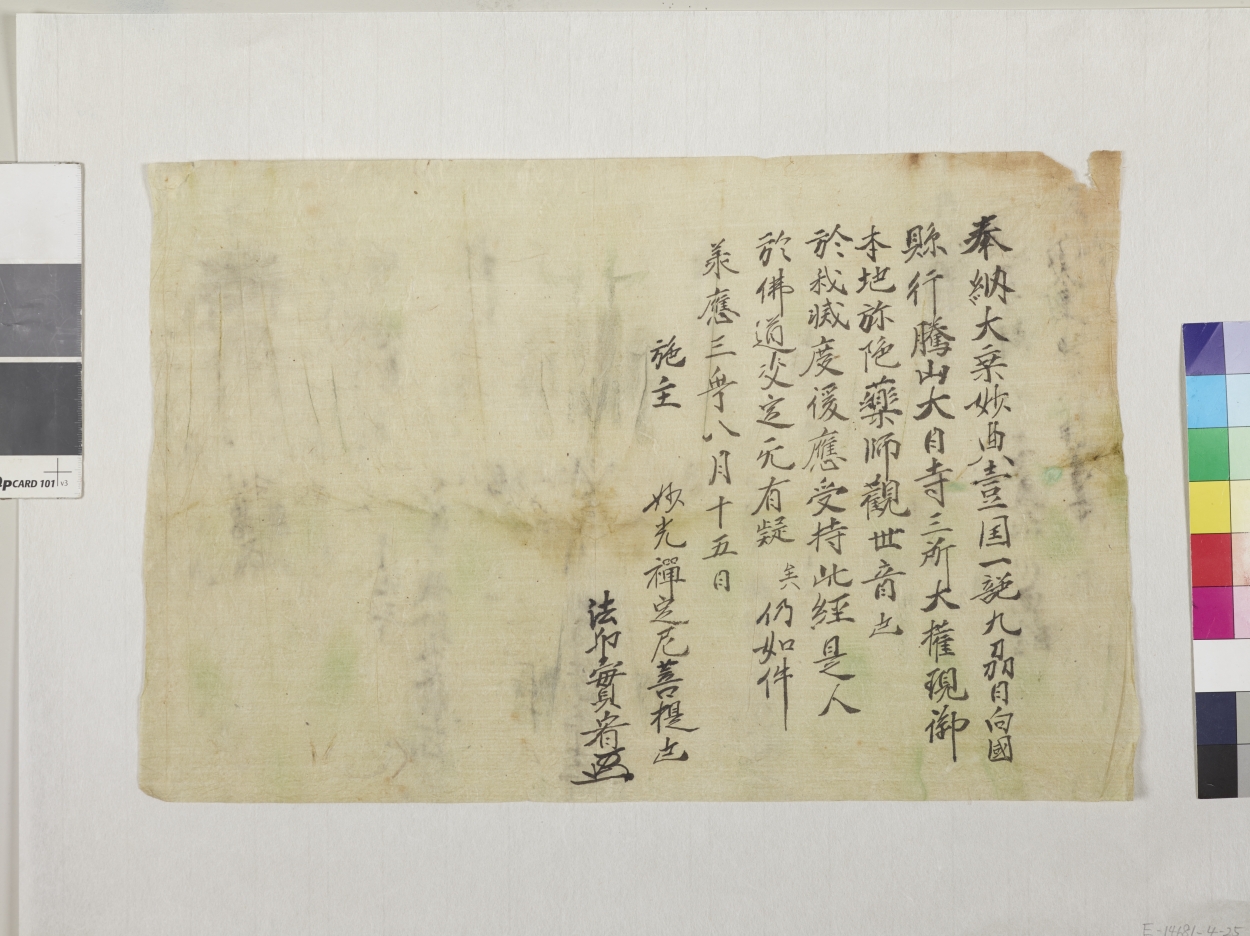 奉納大乗妙典壹国一説九刕日向國
縣行騰山大日寺三所大権現御
本地弥陀藥師觀世音也
於我滅度後應受持此經是人
於佛道决定无有疑矣仍如件
承應三年八月十五日
施主　妙光禪定尼菩提也
法印實
CARD 101 v3
E-14181-4-25